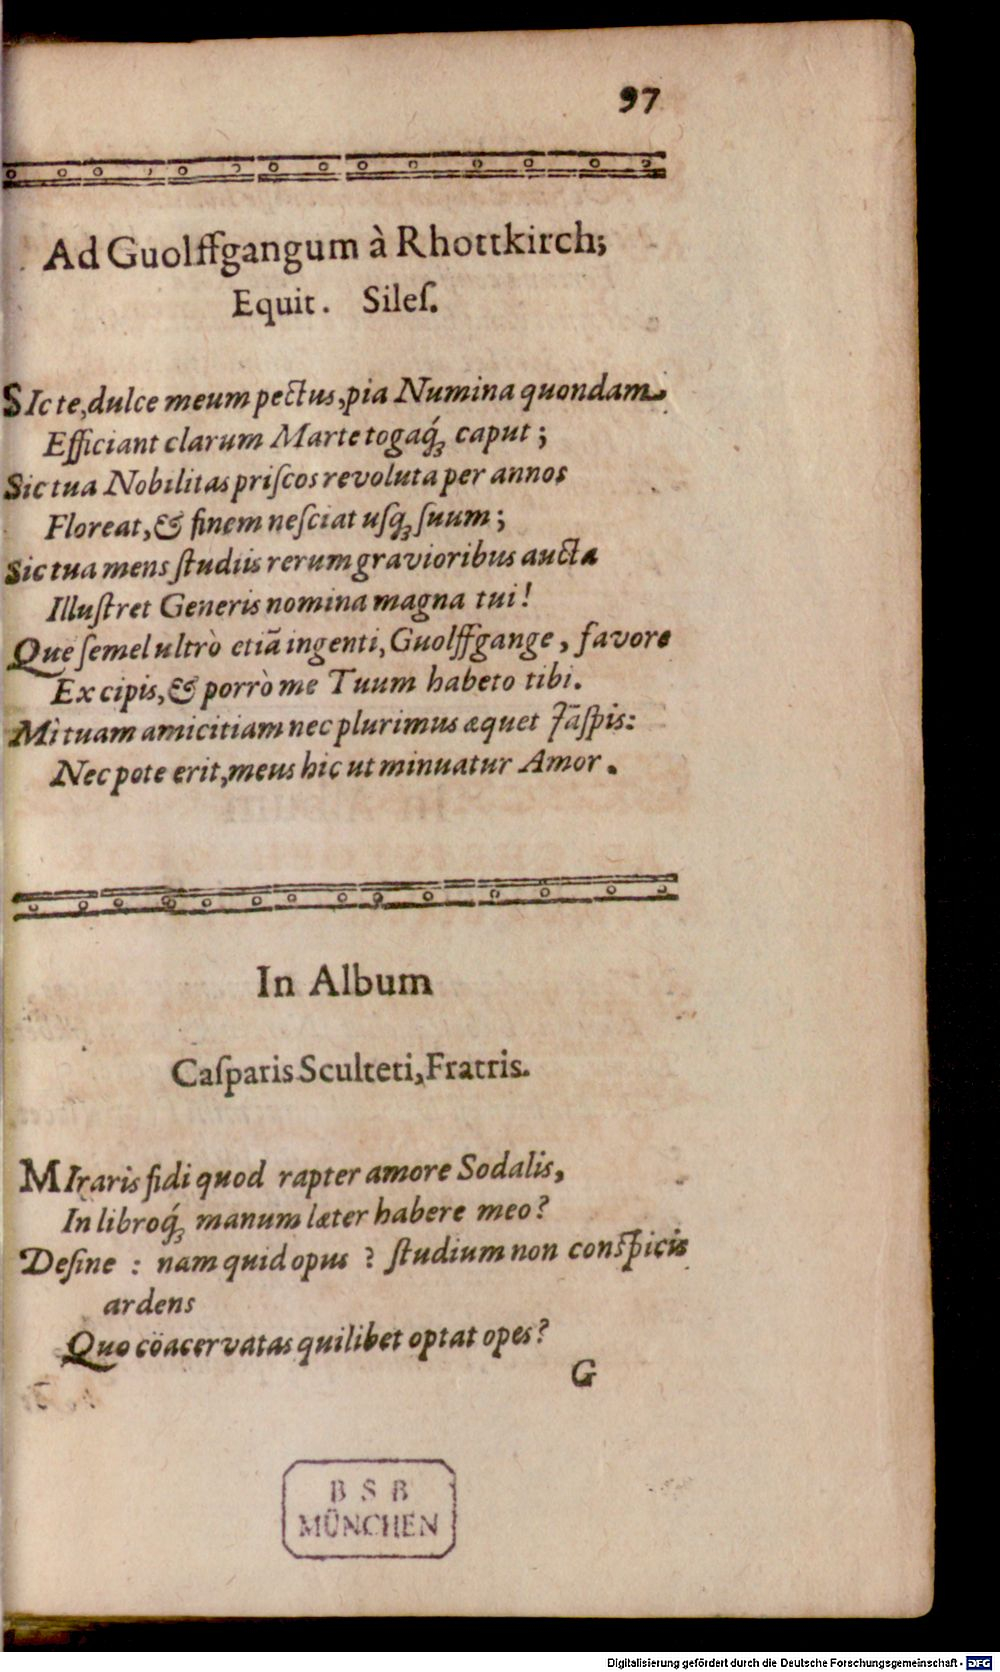 97
Ad Guolffgangum à Rhottkirch;
Equit. Sileſ.
SIc te, dulce meum pectus, pia Numina quondam
Efficiant clarum Marte togaq́ꝫ caput ;
Sic tua Nobilitas priſcos revoluta per annos
Floreat, & finem neſciat uſqꝫ ſuum ;
Sic tua mens ſtudiis rerum gravioribus aucta
Illuſtret Generis nomina magna tui !
Que ſemel ultrò etiã ingenti, Guolffgange, favore
Excipis, & porrò me Tuum habeto tibi.
Mì tuam amicitiam nec plurimus æquet Jãſpis:
Nec pote erit, meus hic ut minuatur Amor.
In Album
Caſparis Sculteti, Fratris.
MIraris fidi quod rapter amore Sodalis,
In libroq́ꝫ manum læter habere meo?
Deſine : nam quid opus ? ſtudium non conſpicis
ardens
Quo cöacervatas quilibet optat opes?
G
B S B
MÜNCHEN
Digitalisierung gefördert durch die Deutsche Forschungsgemeinschaft - DFG